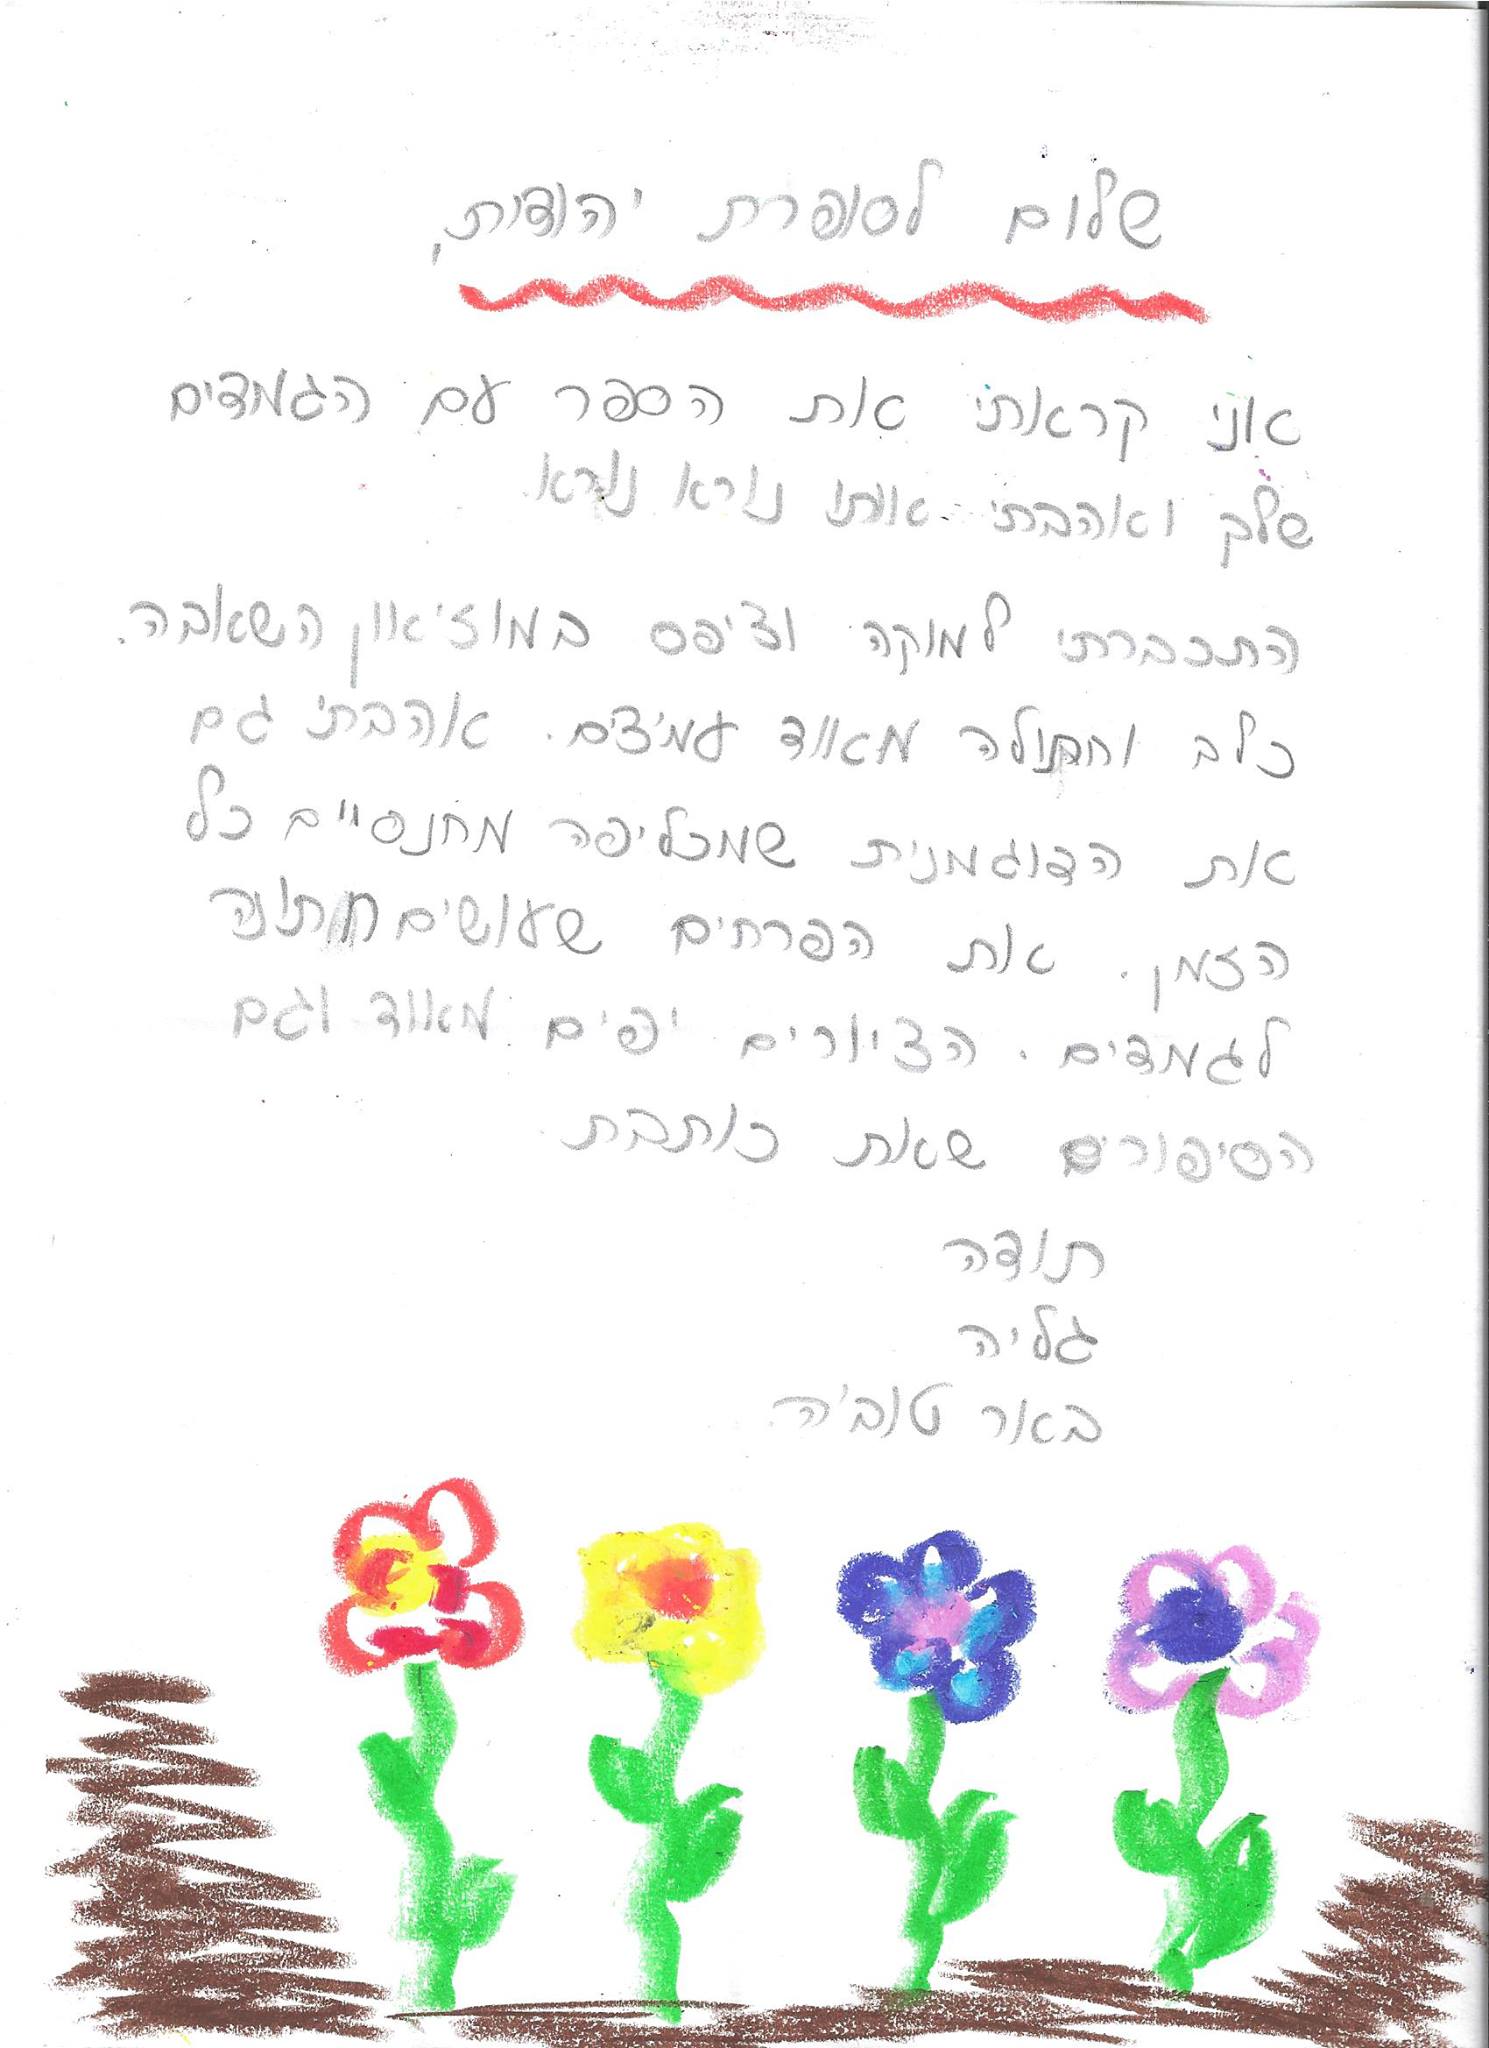 שלום לסופרת יהודית,
אני קראתי את הספר עם הגמדים
שלך ואהבתי אותו נורא נורא.
התחברתי למוקה וציפס במוזיאון השאבה.
כלב וחתולה מאוד עמיצים. אהבתי גם
את הדוגמנית שמכליפה מחנסיים כל
הזמן. את הפרחים שעושים חתונה
לגמדים. הציורים יפים מאוד וגם
הסיפורים שאת כותבת.
תודה
גליה
באר טוביה